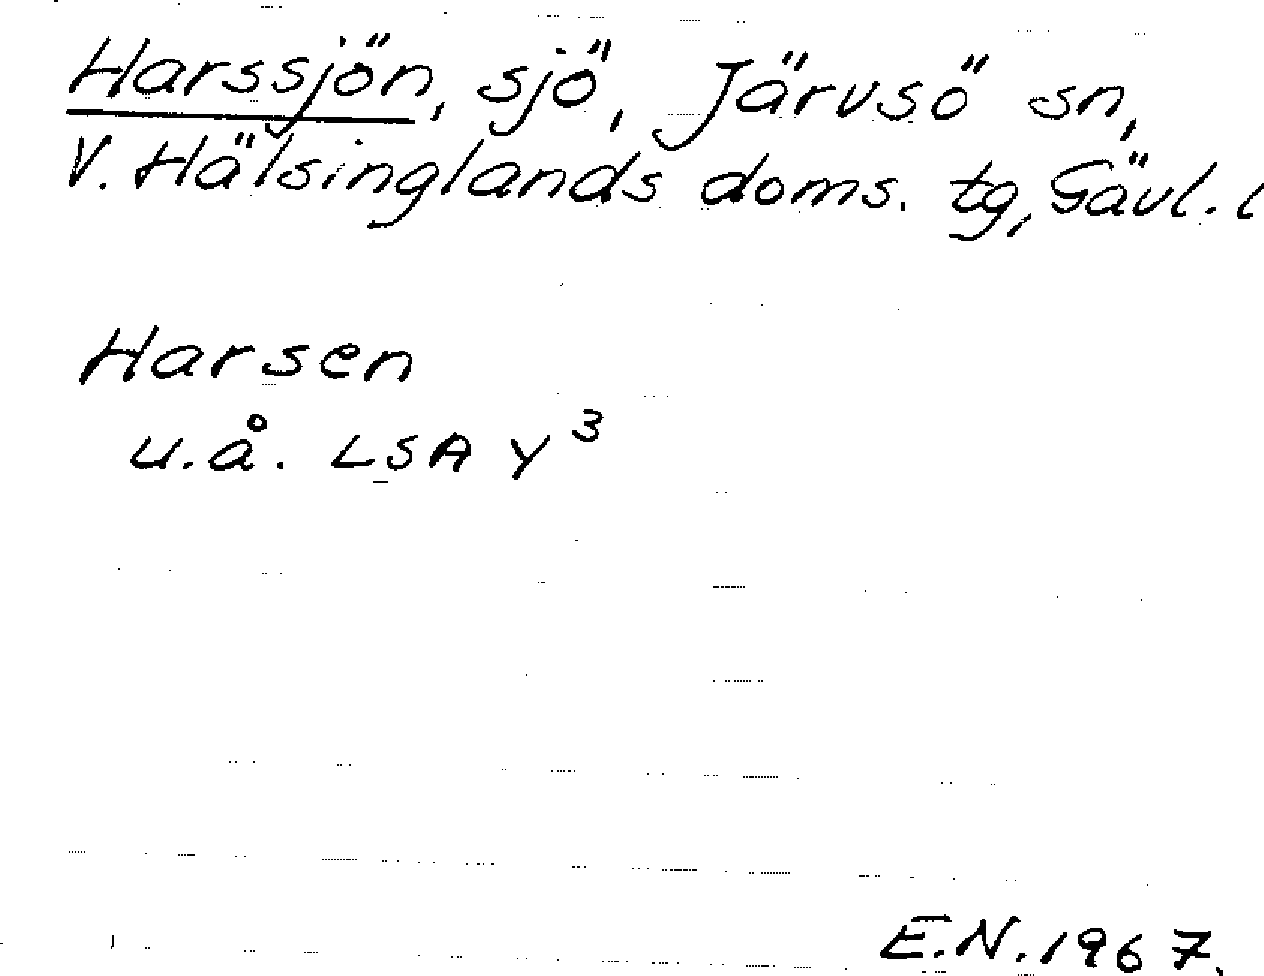 Harssjön, sjö, Järvsö sn,
V. Hälsinglands doms. tg, Gävl. l
Harsen
u.å. LSA Y³
E.N. 1967.